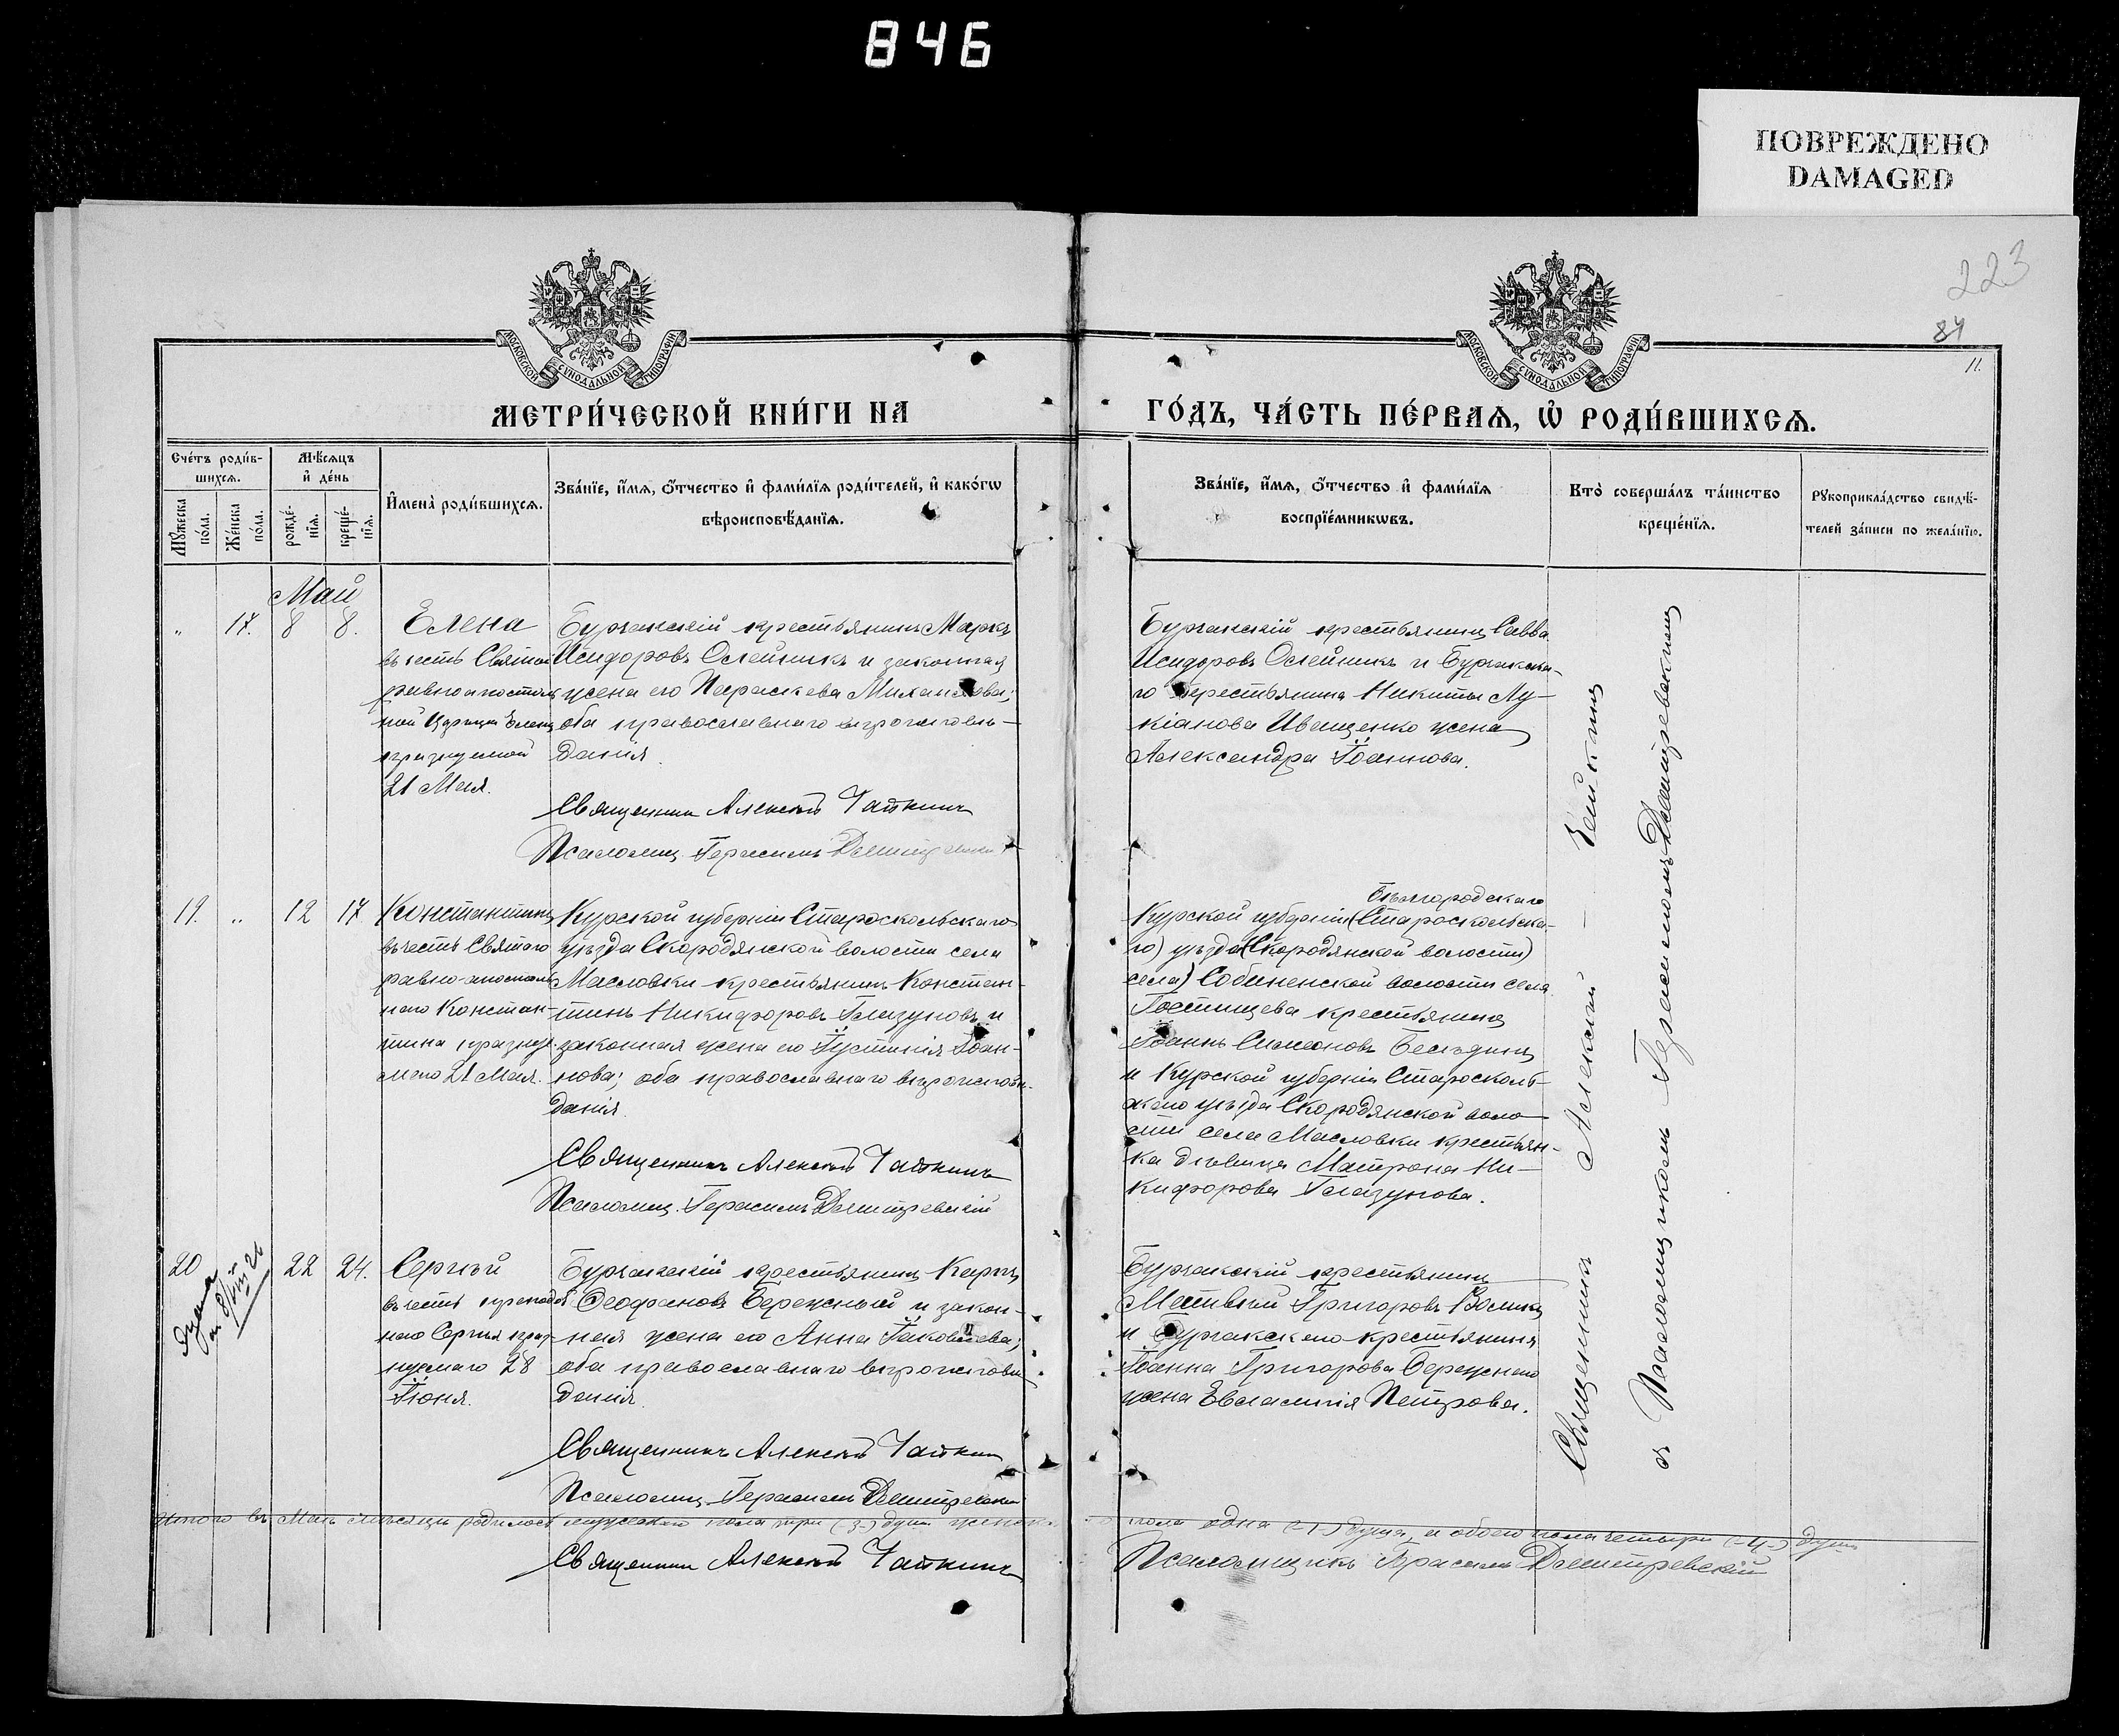 846
ПОВРЕЖДЕНО
DAMAGED
223
84
11.
МОСКОВСКОЙ СѴНОДАЛЬНОЙ ТИПОГРАФІИ
МОСКОВСКОЙ СѴНОДАЛЬНОЙ ТИПОГРАФІИ
МЕТРИ́ЧЕСКОЙ КНИ́ГИ НА
ГО́ДЪ, ЧА́СТЬ ПЕ́РВАѦ, Ѡ҆ РОДИ́ВШИХСѦ.
Сче́тъ роди́в-
шихсѧ.
Мꙋ́жеска
по́ла.
Же́нска
по́ла.
Мѣ́сѧцъ
и҆ де́нь
рожде́-
нїѧ.
креще́-
нїѧ.
И҆мена̀ роди́вшихсѧ.
Зва́нїе, и҆́мѧ, ѻ҆́тчество и҆ фами́лїѧ роди́телей, и҆ како́гѡ
вѣроисповѣ́данїѧ.
Зва́нїе, и҆́мѧ, ѻ҆́тчество и҆ фами́лїѧ
воспрїе́мникѡвъ.
Кто̀ соверша́лъ та́инство
креще́нїѧ.
Рꙋкоприкла́дство свидѣ́-
телей за́писи по жела́нїю.
Май
" 17. 8 8.
Елена
въ честь Святой
равноапостоль
ной Царицы Елены
празднуемой
21 Мая.
Бурчакскій крестьянинъ Маркъ
Исидоровъ Олейникъ и законная
жена его Параскева Михайлова;
оба православнаго вѣроисповѣ-
данія.
Священникъ Алексѣй Чайкинъ
Псаломщ. Герасимъ Димитревскій
Бурчакскій крестьянинъ Савва
Исидоровъ Олейникъ и Бурчакска-
го крестьянина Никиты Лу-
кіанова Иващенко жена
Александра Іоаннова.
19. " 12 17
Константинъ
въ честь Святого
равно-апостоль
наго Констан-
тина праздну.
мого 21 Мая.
Курской губерніи Старооскольскаго
уѣзда Скороднянской волости села
Масловки крестьянинъ Констан-
тинъ Никифоровъ Глазуновъ и
законная жена его Іустинія Іоан-
нова; оба православнаго вѣроисповѣ-
данія.
Священникъ Алексѣй Чайкинъ
Псаломщ. Герасимъ Димитревскій
Бѣлгородскаго
Курской губерніи (Старооскольска-
го) уѣзда (Скороднянской волости)
села) волости села
Гостищева крестьянинъ
Іоаннъ Симеоновъ Бесѣдинъ
и Курской губерніи Старооскольс-
каго уѣзда Скороднянской воло-
сти села Масловки крестьян-
ка дѣвица Матрона Ни-
кифорова Глазунова.
20 22 24.
Сергѣй
въ честь преподоб
наго Сергія празд-
нуемаго 28
Іюня.
Бурчакскій крестьянинъ Карпъ
Ѳеофановъ Бережный и закон-
ная жена его Анна Іаковлева;
оба православнаго вѣроисповѣ
данія.
Священникъ Алексѣй Чайкинъ
Псаломщ. Герасимъ Димитревскій
Бурчакскій крестьянинъ
Матвѣй Григоровъ Воликъ
и Бурчакскаго крестьянина
Іоанна Григорова Бережнаго
жена Евлампія Петрова.
Священникъ Алексѣй Чайкинъ
съ Псаломщикомъ Герасимомъ Димитревскимъ
Итого въ Маѣ мѣсяцѣ родилось мужеского пола три (-3-) души женскаго пола одна (-1-) душа, и обоего пола четыре (-4-) души
Священникъ Алексѣй Чайкинъ
Псаломщикъ Герасимъ Димитревскій